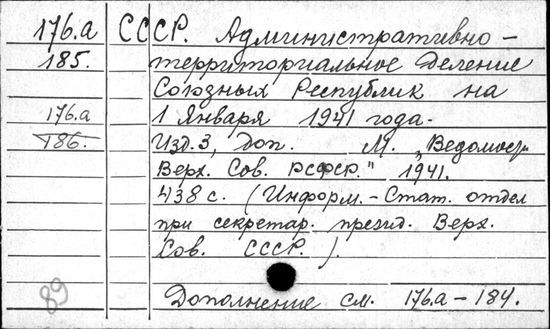 176.а СССР. Административно-
185. территориальное деление
Союзных Республик на
176.а 1 Января 1941 года.
186. Изд. 3, доп. М. „Ведомост.
Верх. Сов. РСФСР." 1941.
438 с. (Информ.-Стат. отдел
при секретар. презид. Верх.
Сов. СССР.).
89
Дополнение см. 176а-184.